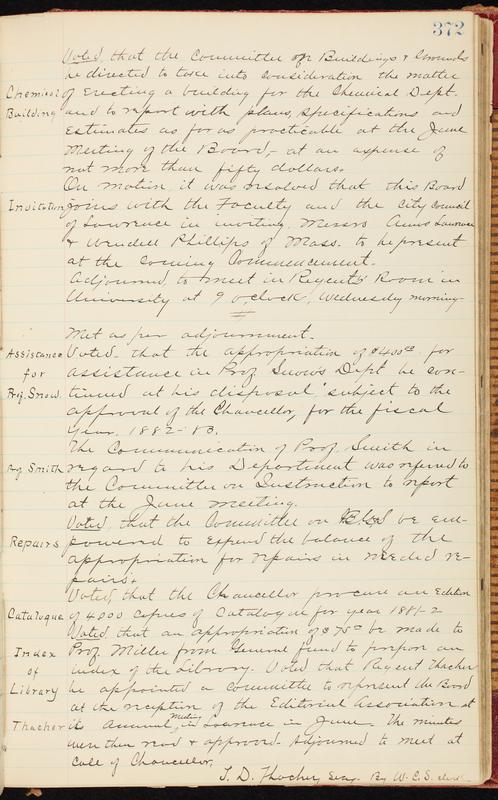 372
Voted, that the Committee on Buildings & Grounds
be directed to take into consideration the matter
Chemical of Erecting a building for the Chemical Dept.
Building and to report with plans, specifications and
Estimates as far as practicable at the June
Meeting of the Board, at an expense of
not more than fifty dollars.
On motion, it was resolved that this Board
Invitation joins with the Faculty and the City Council
of Lawrence in inviting Messrs Amos Lawrence
& Wendell Phillips of Mass. to be present
at the coming Commencement.
Adjourned, to meet in Regents' Room in
University at 9 o'clock, Wednesday morning
Met as per adjournment.
Assistance Voted, that the appropriation of $400.00 for
for assistance in Prof. Snow's Dept be con-
Prof. Snow. tinued at his disposal, subject to the
approval of the Chancellor, for the fiscal
year, 1882-83.
The Communication of Prof. Smith in
Prof Smith regard to his Department was referred to
the Committee on Instruction to report
at the June meeting.
Voted, that the Committee on be em-
Repairs powered to expend the balance of the
appropriation for repairs in needed re-
pairs.
Voted, that the Chancellor procure an Edition
Catalogue of 4000 copies of Catalogue for year 1881-2
Voted, that an appropriation of $75.00 be made to
Index Prof. Miller from General fund to prepare an
of index of the Library. Voted that Regent Thacher
Library be appointed a committee to represent the Board
at the reception of the Editorial Association at
Thacher its Annual Meeting in Lawrence in June. The minutes
were then read & approved. Adjourned to meet at
call of Chancellor.
T. D. Thacher, Secy. By W. C. S. clerk